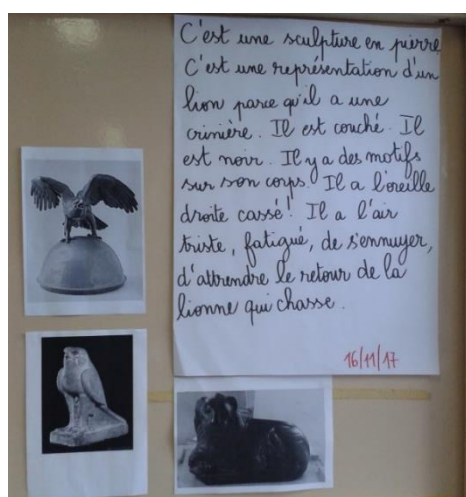 C'est une sculpture en pierre
C'est une représentation d'un
lion parce qu'il a une
crinière. Il est couché. Il
est noir. Il y a des motifs
sur son corps. Il a l'oreille
droite cassé! Il a l'air
triste, fatigué, de s'ennuyer,
d'attendre le retour de la
lionne qui chasse.
16/11/17